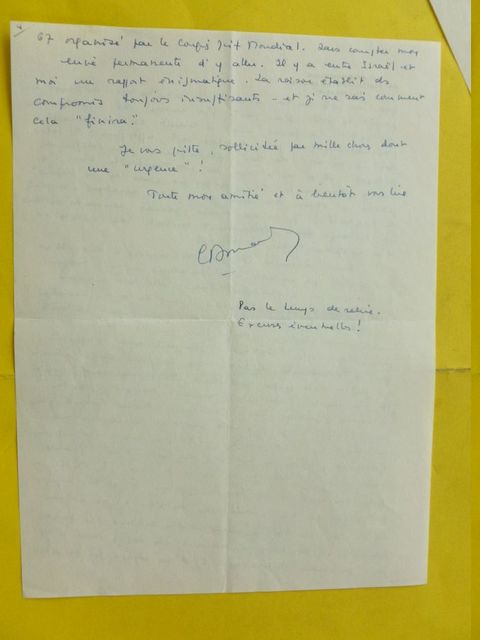 4/
67 organisé par le Congrès Juif Mondial. Sans compter mon
envie permanente d'y aller. Il y a entre Israël et
moi un rapport énigmatique. La raison établit des
compromis toujours insuffisants - et je ne sais comment
cela "finira".
Je vous quitte, sollicitée par mille choses dont
une "urgence" !
Toute mon amitié et à bientôt vous lire
Pas le temps de relire.
Excuses éventuelles !